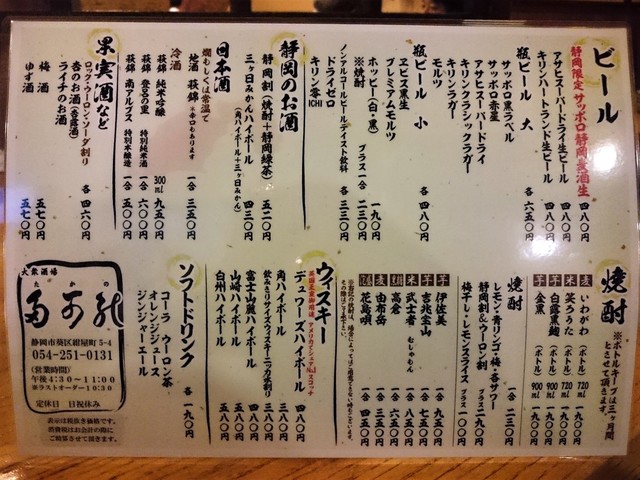 ビール
静岡限定 サッポロ静岡麦酒生 四八〇円
アサヒスーパードライ生ビール 四八〇円
キリンハートランド生ビール 四八〇円
瓶ビール 大 各 六五〇円
サッポロ黒ラベル
サッポロ赤星
アサヒスーパードライ
キリンクラシックラガー
キリンラガー
モルツ
瓶ビール 小 各 四八〇円
ヱビス黒生
プレミアムモルツ
ホッピー(白・黒) 一九〇円
※焼酎 プラス 一合 二三〇円
ノンアルコールビールテイスト飲料 各 三三〇円
ドライゼロ
キリン零ICHI
静岡のお酒
静岡割(焼酎+静岡緑茶) 五二〇円
三ヶ日みかんハイボール
(角ハイボール+三ヶ日みかん)
日本酒
燗もしくは常温で
地酒 萩錦 ※辛口もあります 一合 三五〇円
冷酒
萩錦 純米吟醸 300ml 九五〇円
萩錦 登呂の里 特別純米酒 一合
萩錦 南アルプス 特別本醸造 一合 五五〇円
果実酒など
ロック・ウーロン・ソーダ割り
杏のお酒(杏露酒) 各 四六〇円
ライチのお酒
梅酒 五七〇円
ゆず酒 五七〇円
焼酎
※ボトルキープは三ヶ月間とさせて頂きます。
麦 いわがわ (ボトル) 720ml 一九〇〇円
米 笑ろうた (ボトル) 720ml 一九〇〇円
芋 白霧黒麹 (ボトル) 900ml 一九〇〇円
芋 金黒 (ボトル) 900ml 一九〇〇円
焼酎 一合 二三〇円
レモン・青リンゴ・梅・各サワー
静岡割&ウーロン割 プラス 一九〇円
梅干し・レモンスライス プラス 一〇〇円
芋 伊佐美 一合 九五〇円
芋 吉兆宝山 一合 七五〇円
米 武士者 むしゃもん 一合 八五〇円
高倉 一合 六五〇円
麦 由布岳 一合 三八〇円
花島唄 一合 四五〇円
ウィスキー
英国王室御用達 アメリカでシェアNo.1スコッチ
デュワーズハイボール 四八〇円
角ハイボール 三八〇円
飲みきりサイズウィスキーニッカ水割り 三八〇円
富士山麓ハイボール 四八〇円
山崎ハイボール 五八〇円
白州ハイボール 五八〇円
ソフトドリンク 各 一九〇円
コーラ ウーロン茶
オレンジジュース
ジンジャーエール
大衆酒場
たかの
静岡市葵区紺屋町5-4
054-251-0131
(営業時間)
午後4:30〜11:00
※ラストオーダー10:30
定休日 日祝休み
表示は税抜き価格です。
消費税はお会計の際に
ご精算させて頂きます。